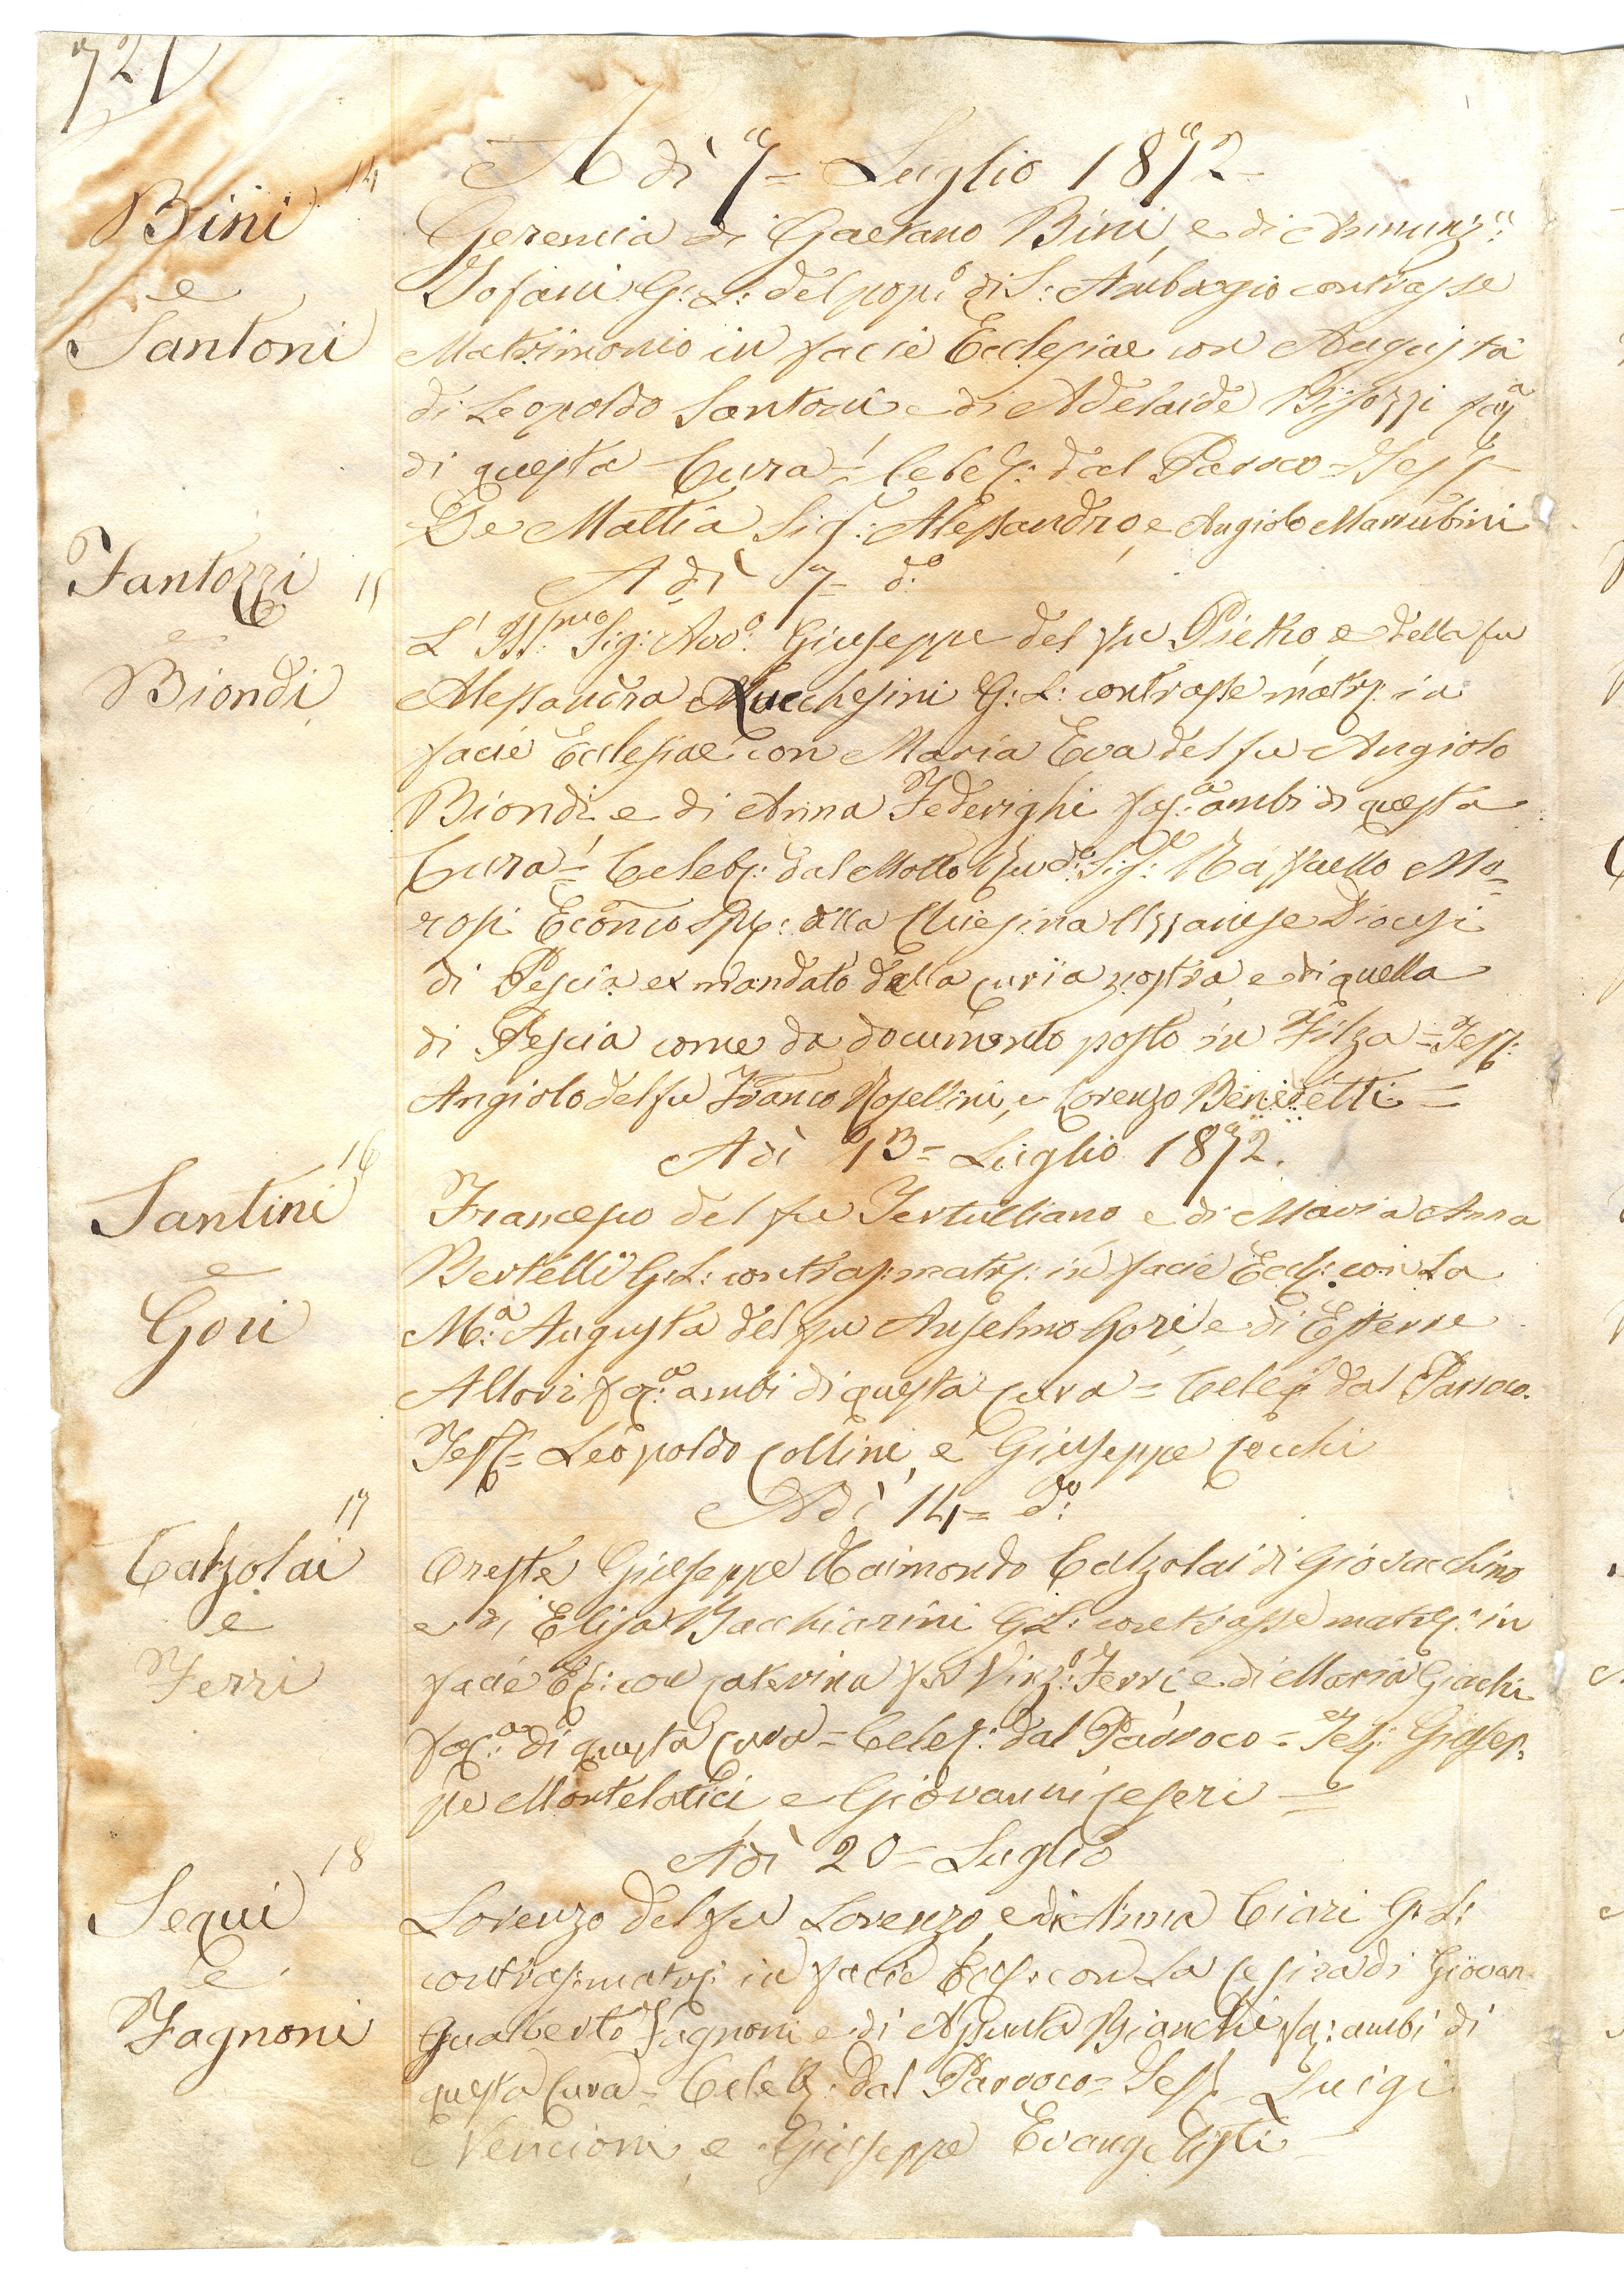 721
14
A dì 7= Luglio 1872=
Bini
e
Santoni
Geremia di Gaetano Bini, e di Annunz:ª
Tofani G: L: del pop:º di S: Ambrogio contrasse
Matrimonio in facie Ecclesiae con Augusta
di Leopoldo Santoni e di Adelaide Bisozzi faª
di questa Cura = Celeb: dal Parroco = Tess:
De Mattia Sig: Alessandro, e Angiolo Marrubini
15
A dì 7= dº
Fantozzi
e
Biondi
L' Ill:mo Sig: Avvº: Giuseppe del fu Pietro e della fu
Alessandra Lucchesini G: L: contrasse matr: in
facie Ecclesiae con Maria Eva del fu Angiolo
Biondi e di Anna Federighi fa:ª ambi di questa
Cura = Celeb: dal Molto Rvdº: Sig:e Raffaello Mo-
rosi Econmo Sp: alla Chiesina Uzzanese Diocesi
di Pescia ex mandato della curia nostra e di quella
di Pescia come da documento posto in Filza = Tess:
Angiolo del fu Franco Rosellini, e Lorenzo Benedetti =
16
Adì 13= Luglio 1872.
Santini
e
Gori
Francesco del fu Tertulliano e di Maria Anna
Bertelli G: L: contras: matr: in facie Eccl: con la
M:ª Augusta del fu Anselmo Gori, e di Esterre
Altori fa:ª ambi di questa cura = Celeb dal Parroco.
Tess= Leopoldo Collini, e Giuseppe Cecchi
17
Adì 14= dº:
Calzolai
e
Ferri
Oreste Giuseppe Raimondo Calzolai di Giovacchino
e di Elisa Bacchiarini G: L: contrasse matr: in
facie Ec: con Caterina fu Vinzº: Ferri e di Maria Giachi
fa:ª di questa cura = Celeb: dal Parroco = Tes: Giusep-
pe Mortelatici e Giovanni Ceseri =
18
Adì 20= Luglio
Sequi
e
Fagnoni
Lorenzo del fu Lorenzo, e di Anna Ciari G: L:
contras: matr: in facie Ecl: con la Cesira di Giovan-
Gualberto Fagnoni e di Assunta Bianchi fa: ambi di
questa Cura = Celeb: dal Parroco = Tess Luigi
Vencioni e Giuseppe Evangelisti =